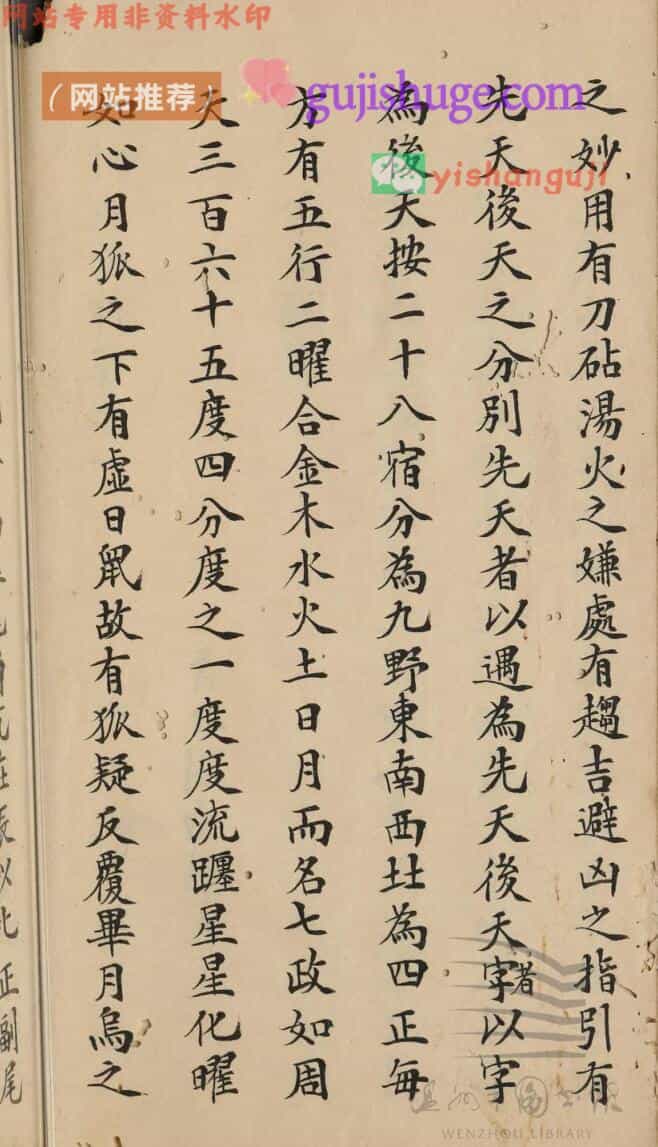 网站专用非资料水印
(网站推荐)
gujishuge.com
yishanguji
之妙用有刀砧湯火之嫌處有趨吉避凶之指引有
先天後天之分別先天者以遇為先天後天字者以字
為後天按二十八宿分為九野東南西北為四正每
方有五行二曜合金木水火土日月而名七政如周
天三百六十五度四分度之一度度流躔星星化曜
如心月狐之下有虛日鼠故有狐疑反覆畢月烏之
正副尾
WENZHOU LIBRARY